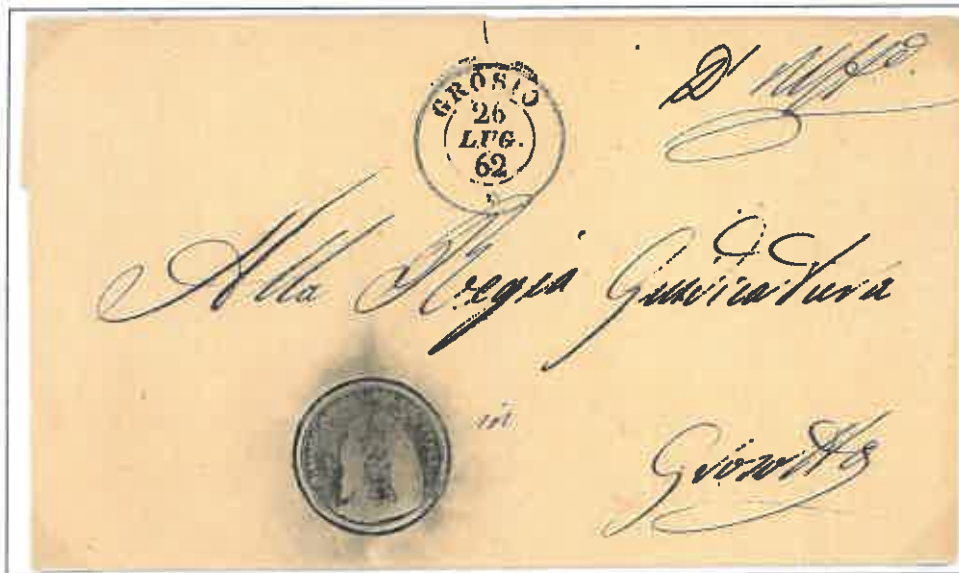 GROSIO
26
LUG.
62
D'Uff°.
Alla Regia Giudicatura
in
Grosotto